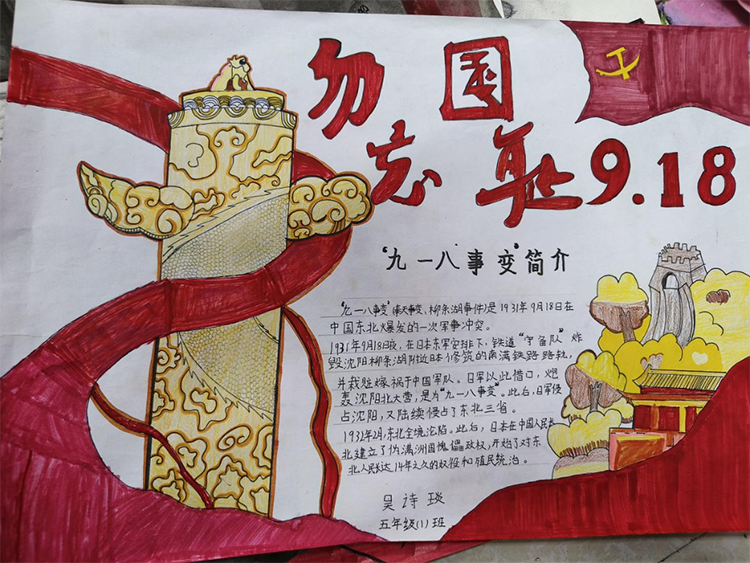 勿忘国耻 9.18
"九一八事变"简介
"九一八事变"(奉天事变、柳条湖事件)是1931年9月18日在
中国东北爆发的一次军事冲突。
1931年9月18日夜,在日本关东军安排下,铁道"守备队"炸
毁沈阳柳条湖附近日本修筑的南满铁路路轨,
并栽赃嫁祸于中国军队。日军以此借口,炮
轰沈阳北大营,是为"九一八事变"。此后,日军侵
占沈阳,又陆续侵占了东北三省。
1932年2月,东北全境沦陷。此后,日本在中国
北建立了伪满洲国傀儡政权,开始了对东
北人民长达14年之久的奴役和殖民统治。
吴诗琰
五年级(1)班